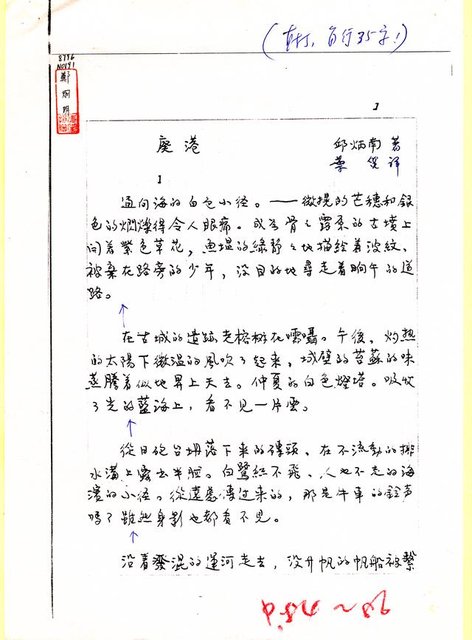 (直打，每行35字！)
8786
N0121
1
廢港
邱炳南 著
葉笛 译
1
通向海的白色小徑。——微提的芒穗和銀
色的燜燦得令人眼痛。或為骨之露系的古墳上
向着紫色草花，魚塭的綠靜靜地描绘着波紋、
被棄在路旁的少年，没目的地尋走着晌午的道
路。
在古城的遺跡老榕樹在囁嚅。午後，灼熱
的太陽下微温的風吹了起來，城壁的苔蘚的味
蒸騰着似地昇上天去。仲夏的白色燈塔。吸收
了光的藍海上，看不見一片雲。
從旧砲台坍落下來的磚頭、在不流動的排
水溝上露出半腔。白鷺丝不飛、人也不走的海
濱的小徑。從遠處傳过來的，那是牛車的鈴声
嗎？雖然身影也都看不見。
沿着發混的運河走去，没升帆的帆船被繫
P.84～86